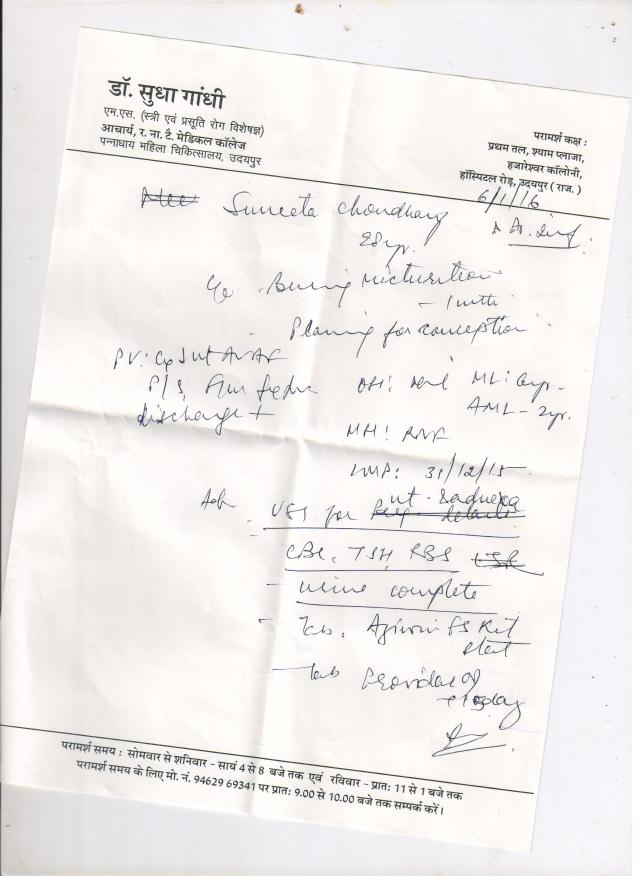 डॉ. सुधा गांधी
एम.एस. (स्त्री एवं प्रसूति रोग विशेषज्ञ)
आचार्य, र. ना. टै. मेडिकल कॉलेज
पन्नाधाय महिला चिकित्सालय, उदयपुर
परामर्श कक्ष :
प्रथम तल, श्याम प्लाजा,
हजारेश्वर कॉलोनी,
हॉस्पिटल रोड़, उदयपुर ( राज. )
6/1/16
Suneeta Choudhary
28yr.
C/o. Burning micturition
- 1 mth
Planing for conception
P/S
discharge +
OH: ML: 6yr.
AML - 2yr.
MH:
LMP: 31/12/15
Adv
USG for ut.
CBC, TSH, RBS
- urine complete
- Tab. Kit
stat
- Tab
परामर्श समय : सोमवार से शनिवार - सायं 4 से 8 बजे तक एवं रविवार - प्रातः 11 से 1 बजे तक
परामर्श समय के लिए मो. नं. 94629 69341 पर प्रातः 9.00 से 10.00 बजे तक सम्पर्क करें।